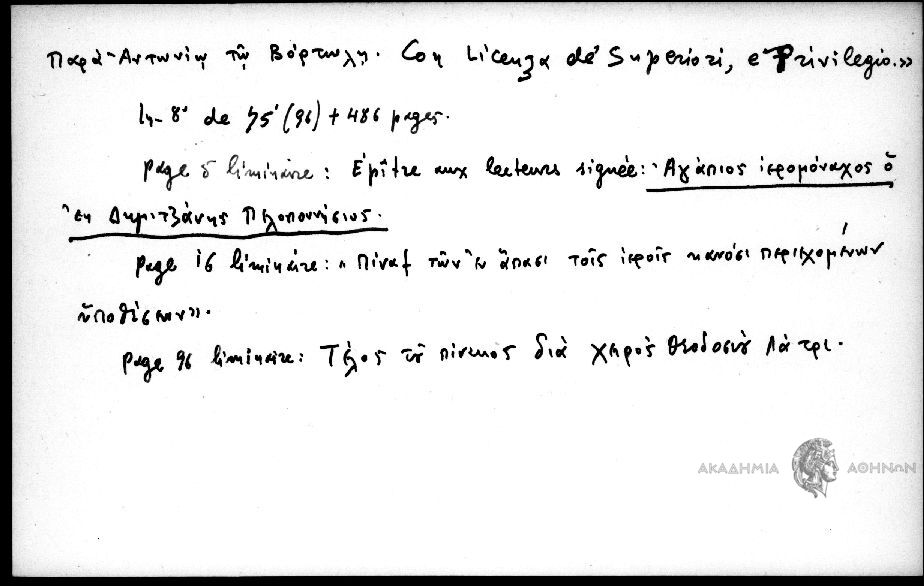 Παρὰ Ἀντωνίῳ τῷ Βόρτωλῃ. Con Licenza de' Superiori, e Privilegio.»
In-8° de ϟϛ' (96) + 486 pages.
page 5 liminaire: Épître aux lecteurs signée: Ἀγάπιος ἱερομόναχος ὁ
ἐκ Δημιτζάνης Πελοποννήσιος.
page 16 liminaire: «Πίναξ τῶν ἐν ἅπασι τοῖς ἱεροῖς κανόσι περιεχομένων
ὑποθέσεων».
page 96 liminaire: Τέλος τοῦ πίνακος διὰ χειρὸς Θεοδοσίου Λάτρι.
ΑΚΑΔΗΜΙΑ ΑΘΗΝΩΝ